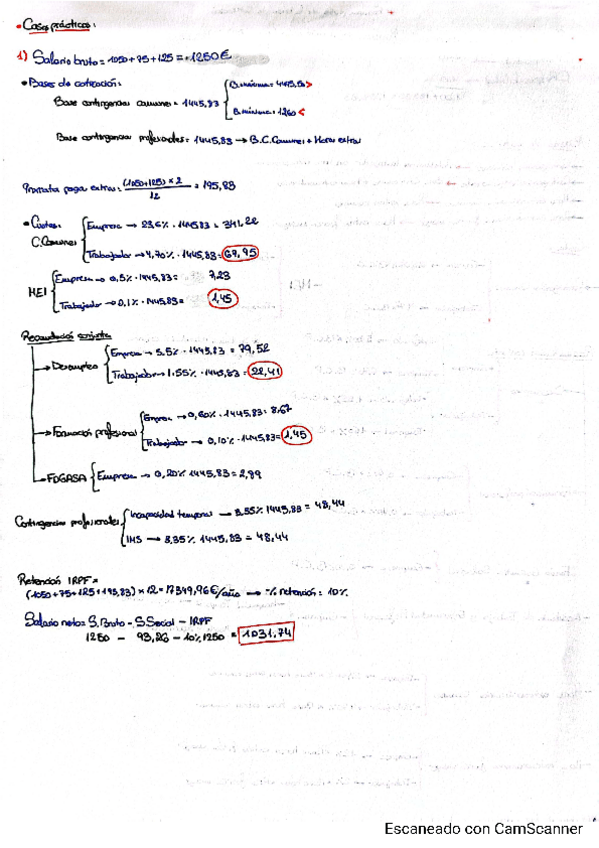 • Casos prácticos:
1) Salario bruto = 1050 + 75 + 125 = 1250 €
• Bases de cotización:
Base contingencias comunes = 1445,83 { B.máxima: 4495,50 >
B.mínima: 1260 <
Base contingencias profesionales: 1445,83 → B.C.Comunes + Horas extras
Prorrata paga extras: (1050+125) x 2 / 12 = 195,83
• Cuotas:
C.Comunes { Empresa → 23,6% · 1445,83 = 341,22
Trabajador → 4,70% · 1445,83 = 67,95
MEI { Empresa → 0,5% · 1445,83 = 7,23
Trabajador → 0,1% · 1445,83 = 1,45
Recaudación conjunta
→ Desempleo { Empresa → 5,5% · 1445,83 = 79,52
Trabajador → 1,55% · 1445,83 = 22,41
→ Formación profesional { Empresa → 0,60% · 1445,83 = 8,67
Trabajador → 0,10% · 1445,83 = 1,45
→ FOGASA { Empresa → 0,20% 1445,83 = 2,89
Contingencias profesionales { Incapacidad temporal → 3,35% 1445,83 = 48,44
IMS → 3,35% 1445,83 = 48,44
Retención IRPF =
(1050+75+125+195,83) x 12 = 17349,96 €/año → % retención: 10%
Salario neto = S.Bruto - S.Social - IRPF
1250 - 93,26 - 10% 1250 = 1031,74
Escaneado con CamScanner